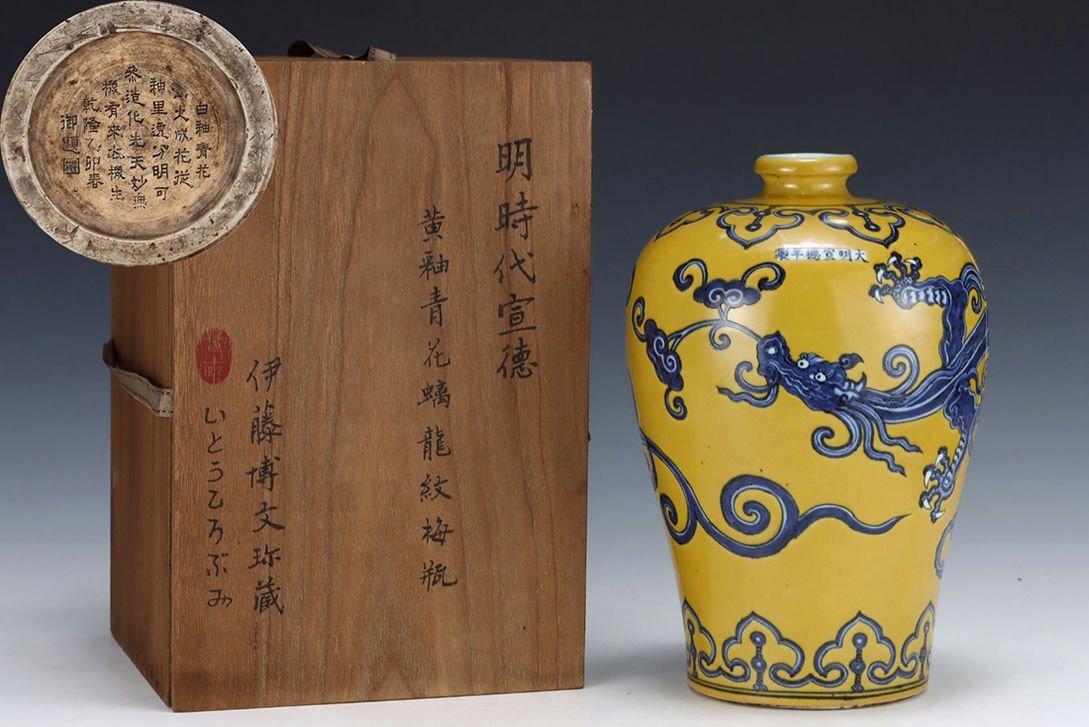 白釉青花
一火成花從
釉里透分明可
參造化先天妙無
機有來太機生
乾隆乙卯春
御題
明時代宣德
黄釉青花螭龍紋梅瓶
伊藤博文珎藏
いとうひろぶみ
大明宣德年製